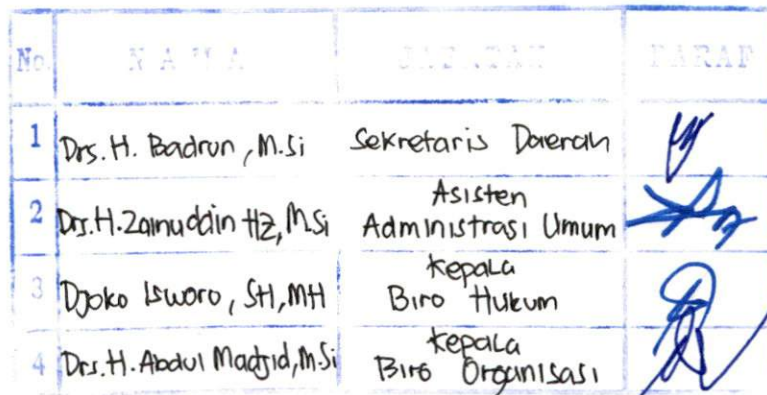 No. NAMA JABATAN PARAF
1 Drs. H. Badrun, M.Si Sekretaris Daerah
2 Drs.H.Zainuddin HZ, M.Si Asisten Administrasi Umum
3 Djoko Isworo, SH, MH Kepala Biro Hukum
4 Drs.H. Abdul Madjid, M.Si Kepala Biro Organisasi